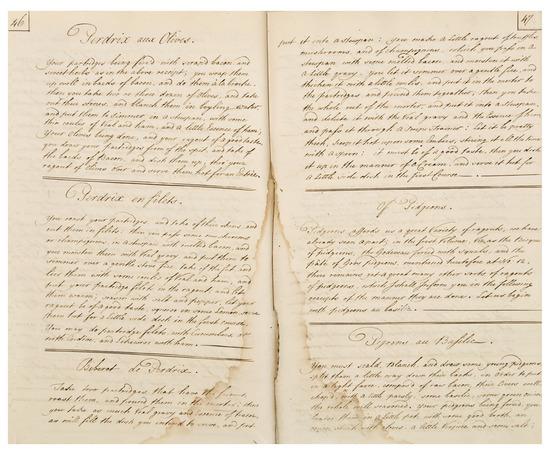 46
Perdrix aux Olives.
Your partridges being fired with scraped bacon, and
sweetherbs as in the above receipt; you wrap them
up well in bards of bacon, and do them à la broche:
then you take two or three dozen of Olives, and take
out their stones, and blanch them in boyling water,
and put them to simmer in a stewpan, with some
thin cullis of Veal and ham, and a little Essence of ham;
Your Olives being done, and your ragout of a good taste,
you draw your partridges from of the spit, and take of
the bards of Bacon, and dish them up; the your
ragout of Olives over and serve them hot for an Entrée.
Perdrix en filets.
You roast your partridges, and take of their skins, and
cut them in filets, then you pass some mushrooms
or champignons, in a stewpan with melted bacon, and
you moisten them with Veal gravy and put them to
simmer over a gentle stove fire, take of the fat, and
bind them with some cullis of Veal and ham, and
put your partridge filets in the ragout and let
them warm; season with salt and pepper, let your
ragout be of a good taste, squeeze in some Lemon, serve
them hot for a little side dish in the first course.
You may do partridge filets with Cucumbers, or
with cardons, and likewise with ham.
Biberot de Perdrix.
Take two partridges that have the fumet,
roast them, and pound them in the mortar; then
you take as much Veal gravy and essence of bacon,
as will fill the dish you intend to serve, and put
47
put it into a stewpan: you make a little ragout of truffles
mushrooms, and of champignons, which you pass in a
stewpan with some melted bacon, and moisten it with
a little gravy. You let it simmer over a gentle fire, and
thicken it with a little cullis, and put it in the mortar to
the partridges and pound them together, then you take
the whole out of the mortar, and put it into a stewpan,
and dilute it with the Veal gravy and the Essence of ham
and pass it through a Soup Strainer: Let it be pretty
thick, keep it hot upon some embers, stirring it all the time
with a spoon: it must be of a good taste, then you dish
it up in the manner of a Cream, and serve it hot for
a little side dish in the first Course.
Of Pidgeons.
Pidgeons affords us a great Variety of ragouts, we have
already seen a part; in the first Volume, Viz: as the Bisque
of pidgeons, the Gateaux fired with squabs, and the
pate of four pidgeons, numbered heretofore at No. 12.
there remains yet a great many other sorts of ragouts
of pidgeons, which I shall inform you in the following
receipts of the manner they are done. Let us begin
with pidgeons au basilic.
Pigeons au Basilic.
You must scald, Blanch, and draw some young pidgeons
split them a little way down their backs, in order to put
in a light farce, compos'd of raw bacon, their Livers well
chop'd, with a little parsly, some basilic, some green onion
the whole well seasoned. Your pidgeons being fired, you
braise them in a little pot, with some good broth, an
onion stuck with cloves, a little Verjuice and some salt;